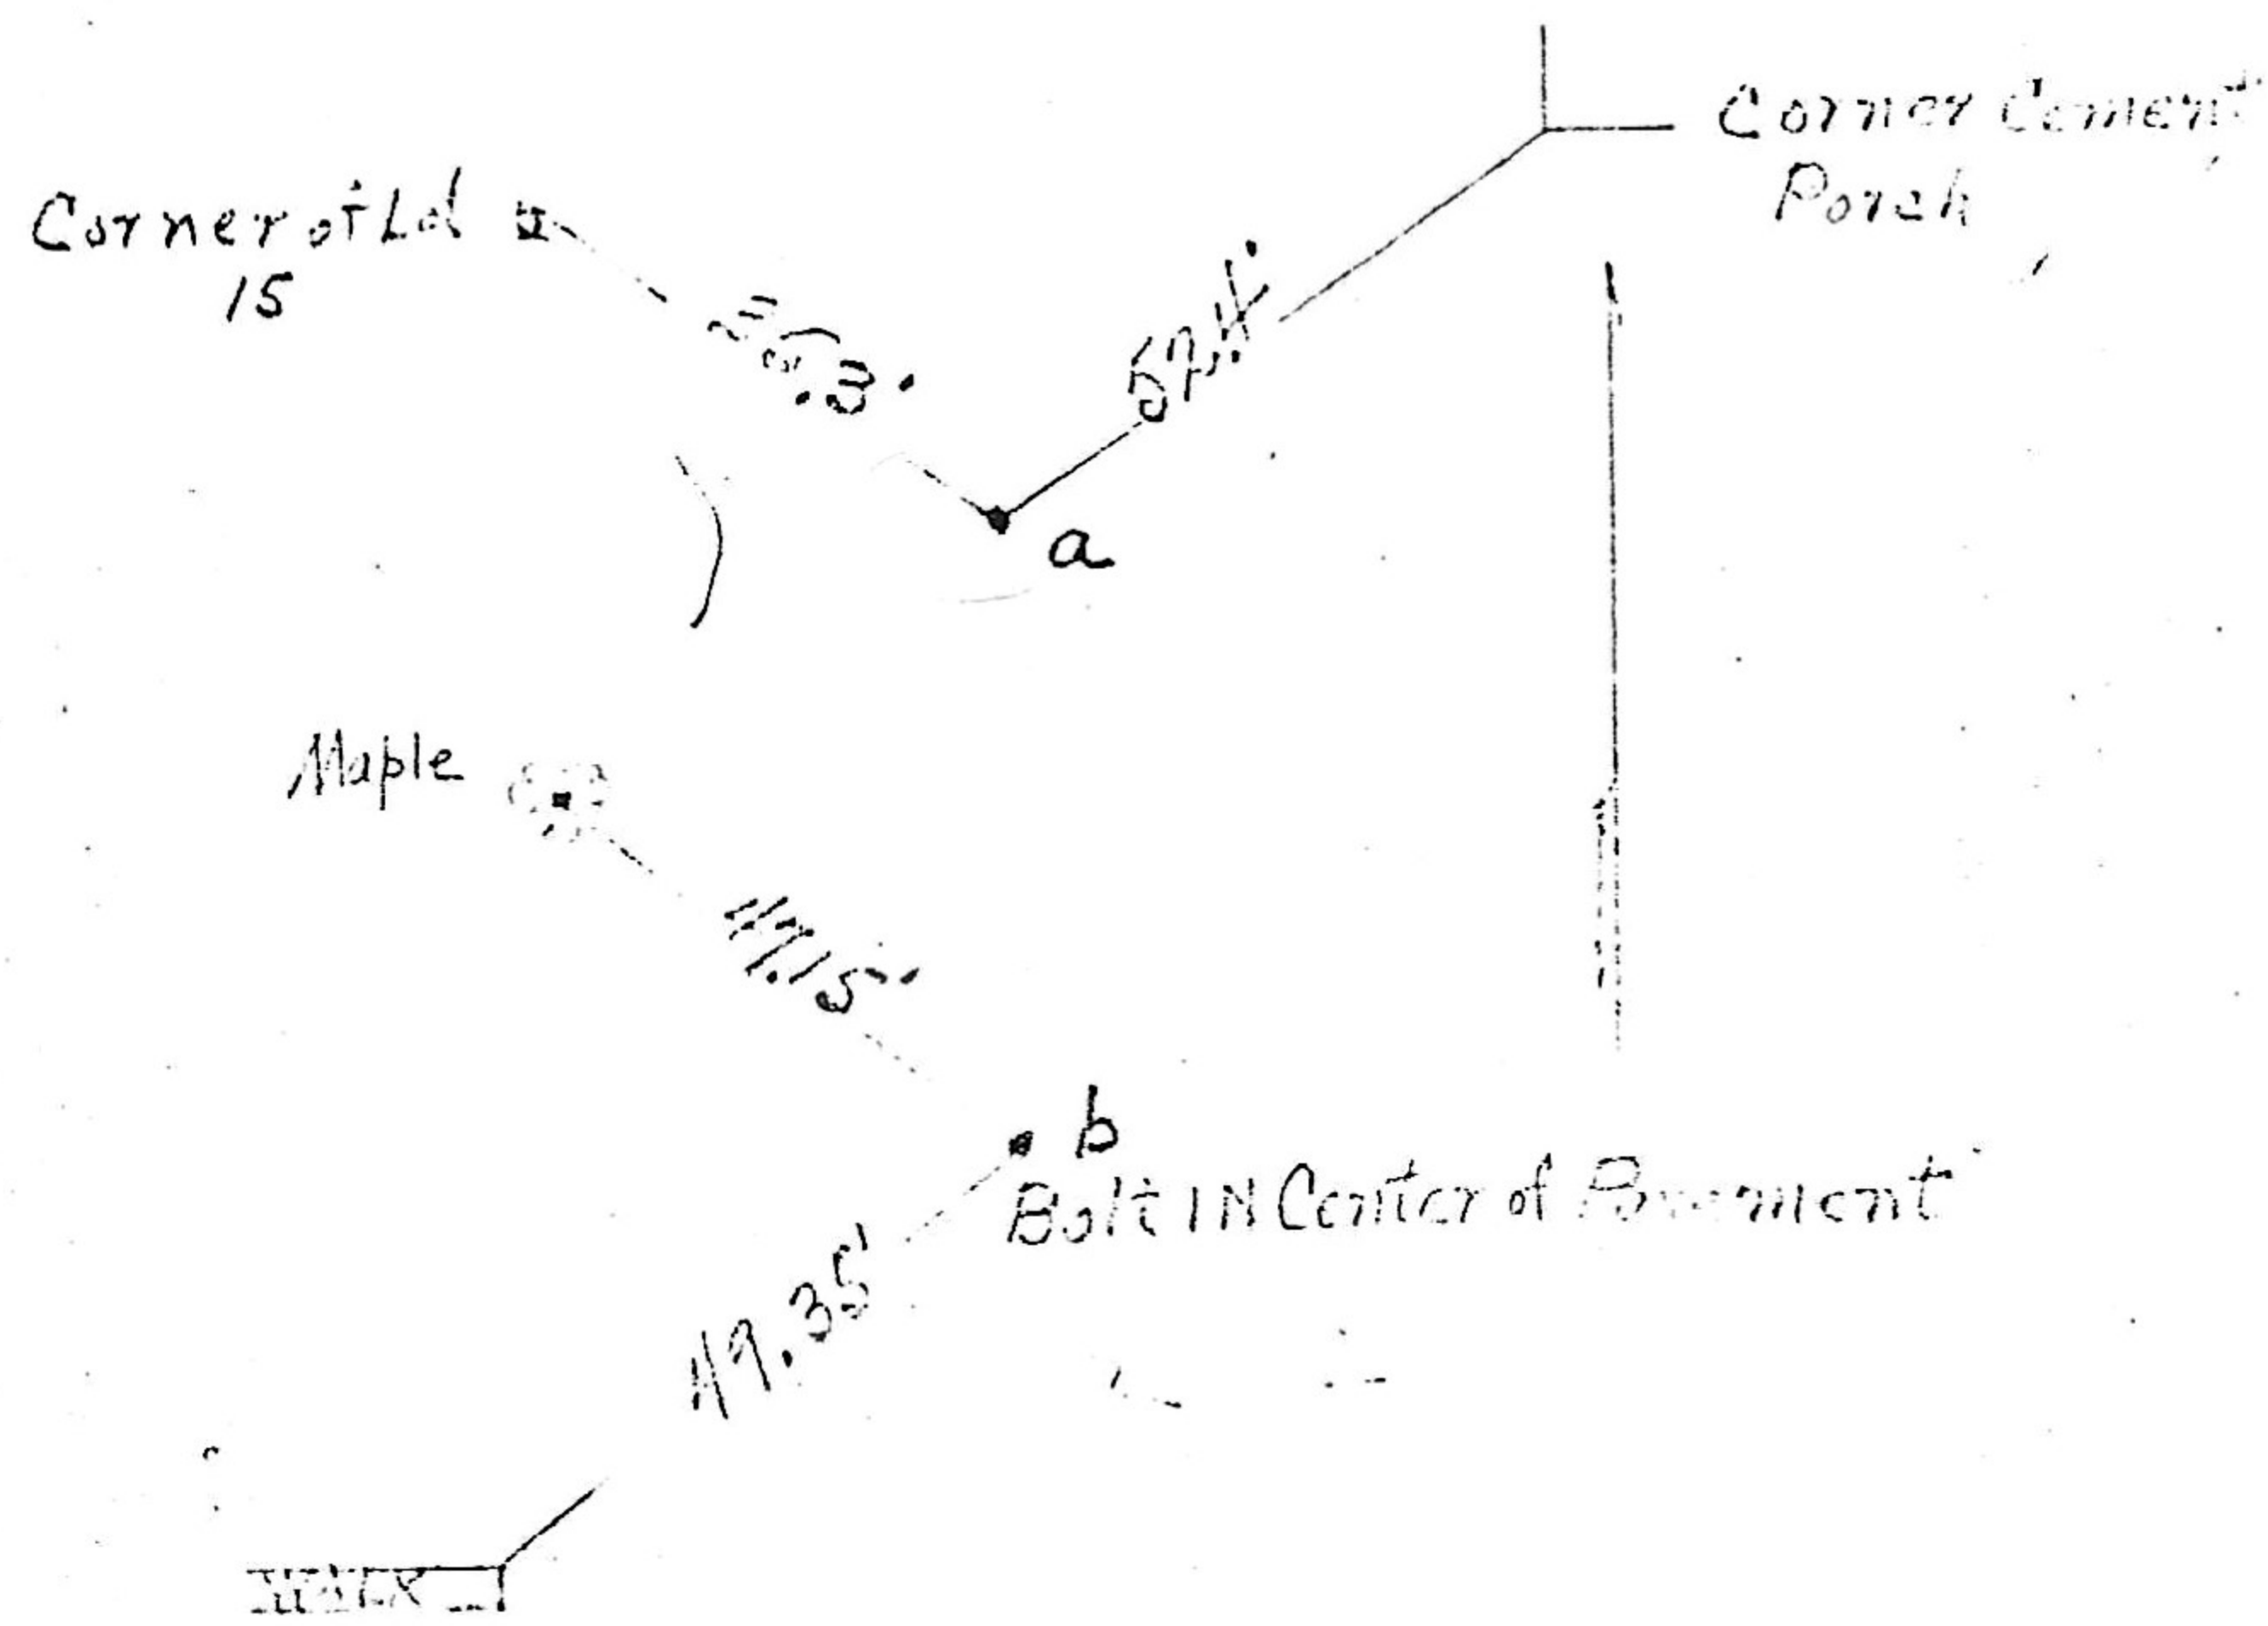 Corner Cement
Porch
Corner of Lot
15
a
Maple
47.15'
b
Bolt IN Center of Pavement
49.35'
Walk